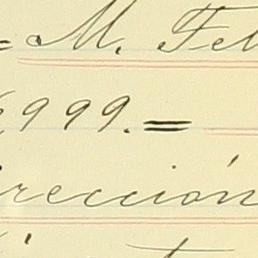 = M. Fel
999. =
rección